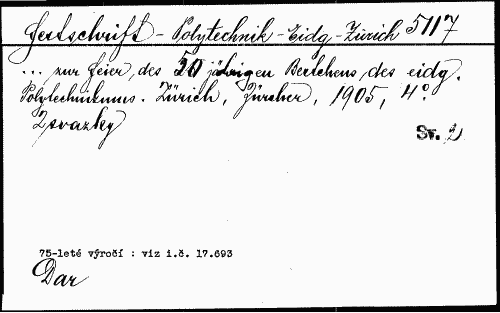 Festschrift - Polytechnik - Eidg. - Zürich 5117
... zur Feier des 50 jährigen Bestehens des eidg.
Polytechnikums. Zürich, Zürcher, 1905, 4°.
2 svazky
Sv. 2
75-leté výročí : viz i.č. 17.693
Dar